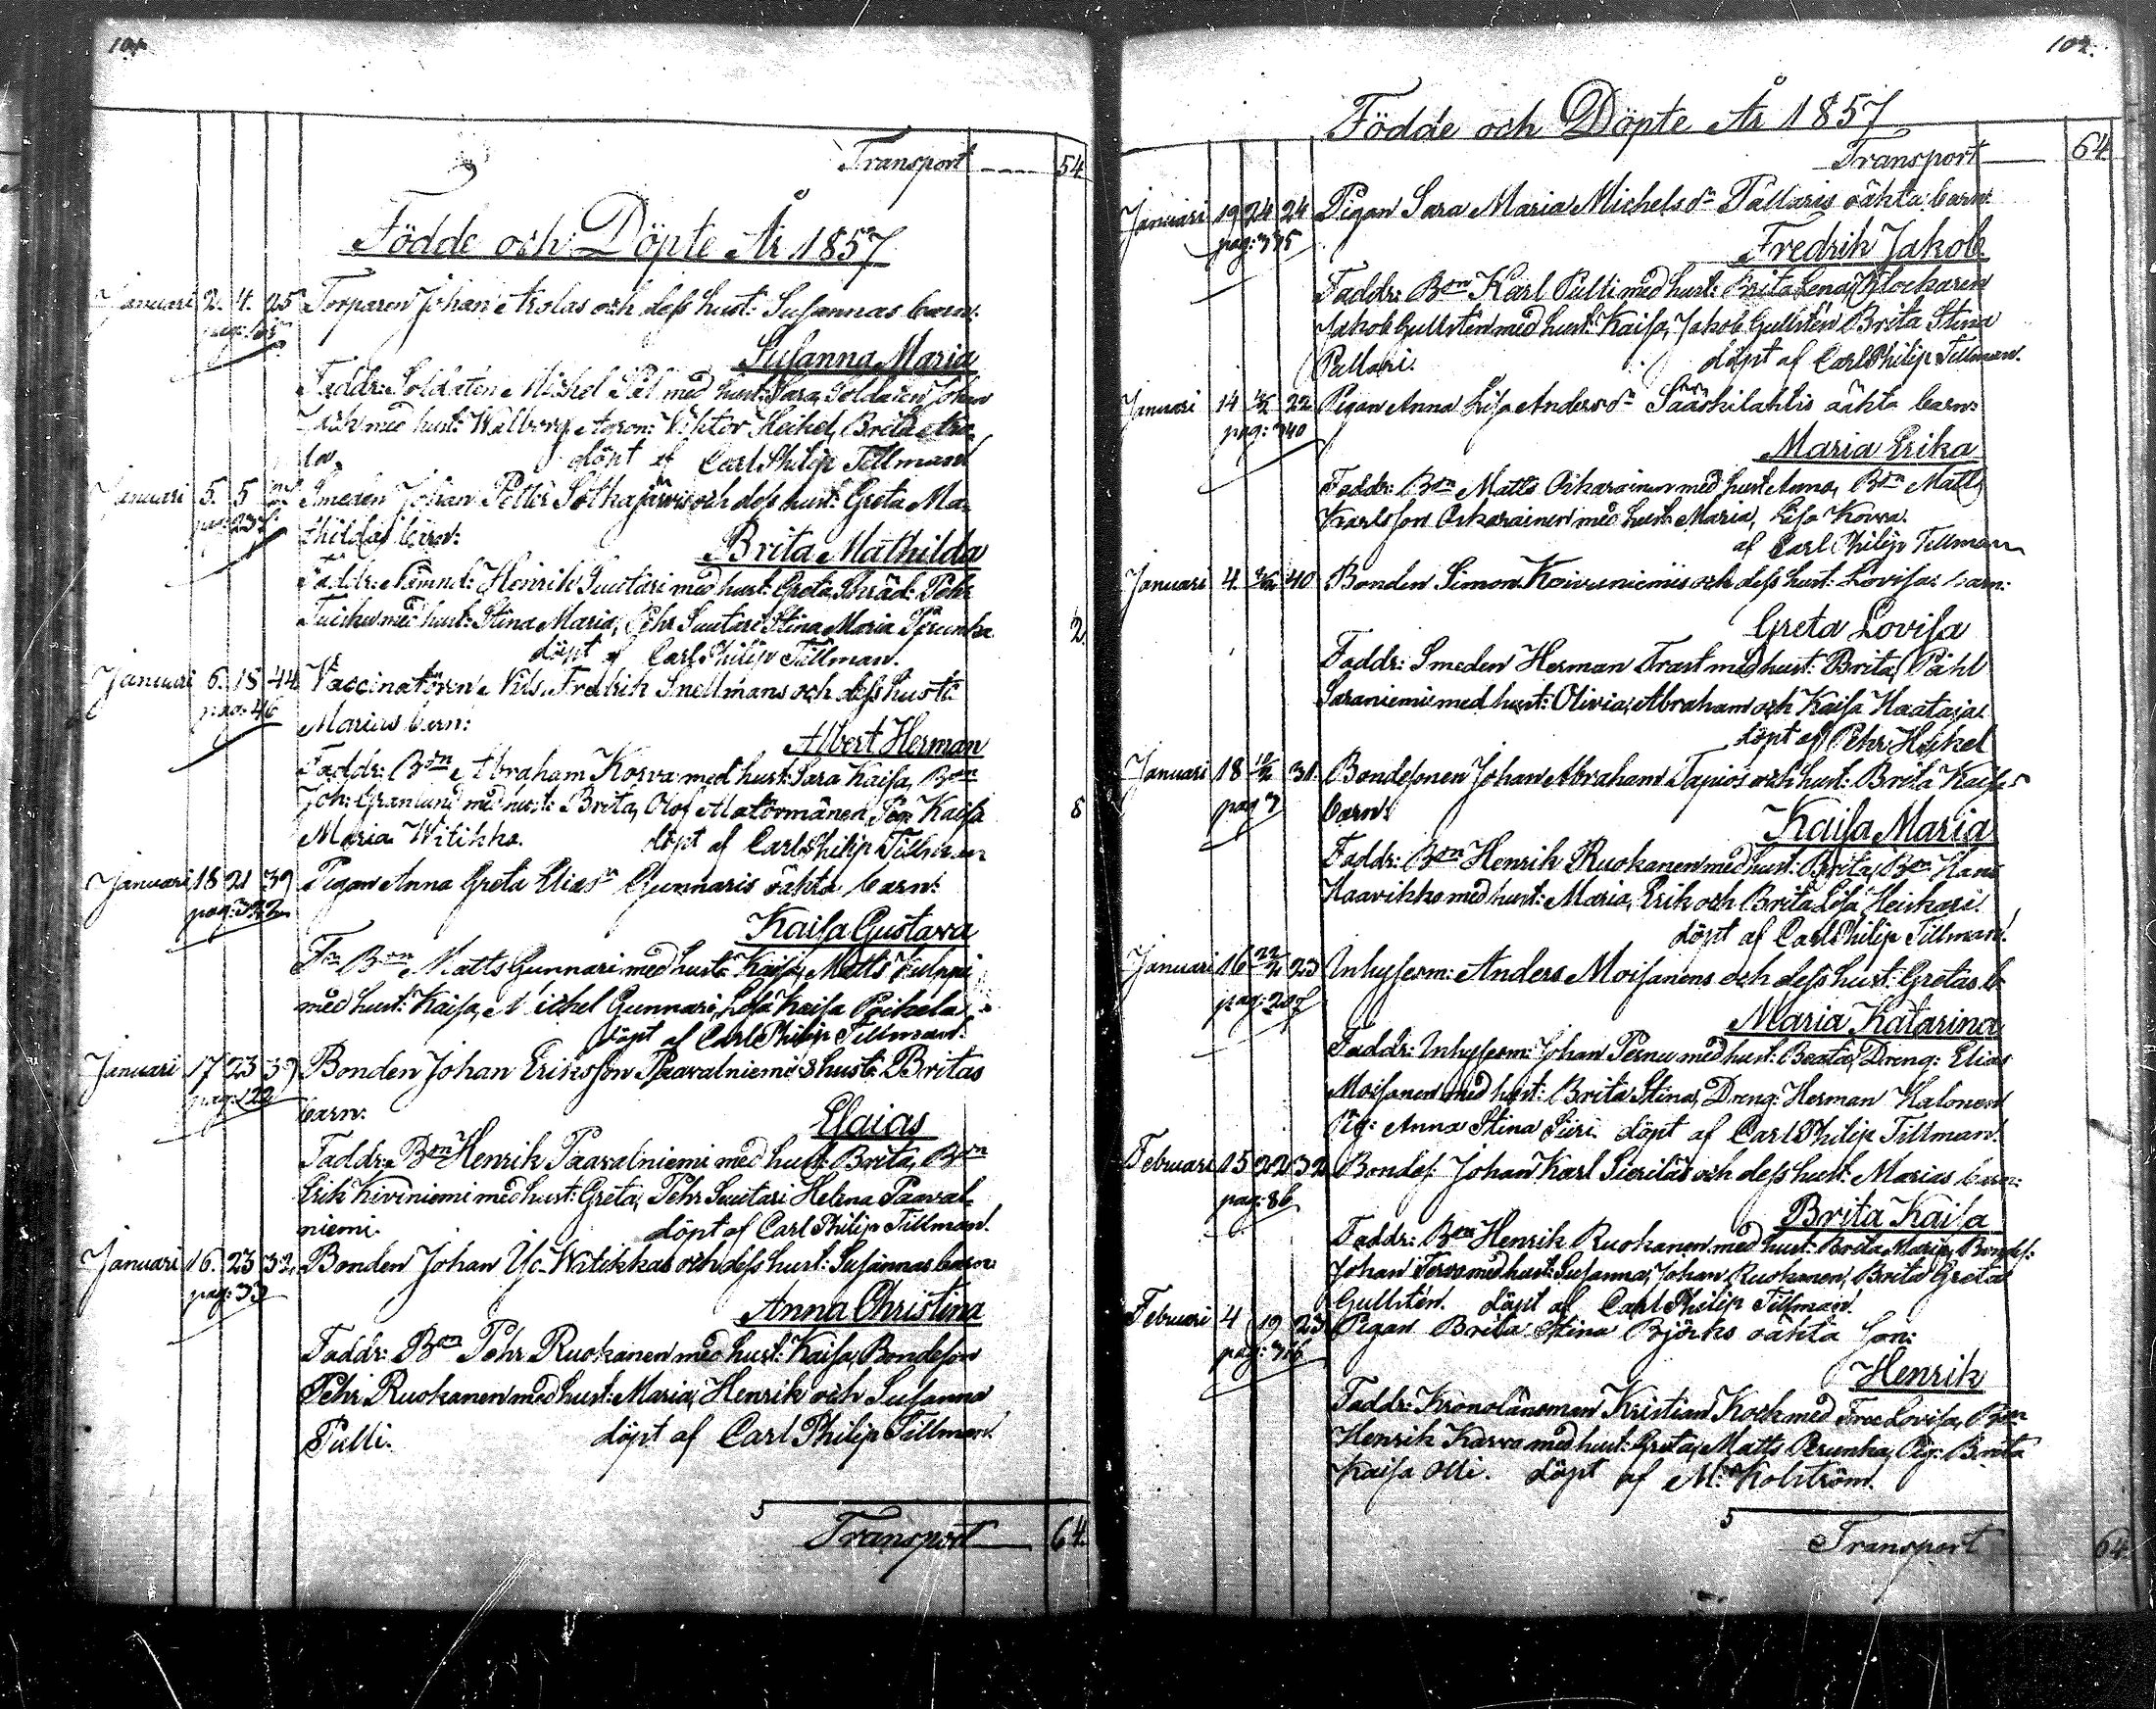 101.
Transport 54
Födde och Döpte År 1857
Januari 2. 4. 25 Torparen Johan Arolas och dess hust: Susannas barn:
Susanna Maria
Faddr: Soldaten Michel Pil med hust: Sara, Soldaten Johan
med hust: Walborg, Viktor Heikel, Brita Aro
la. döpt af Carl Philip Tillman
Januari 5. 5 Smeden Johan Petter Sotkajärvis och dess hust: Greta Ma
thildas barn:
Brita Mathilda
Faddr: Nämnd: Henrik Suutari med hust: Greta, Skräd: Pehr
med hust: Stina Maria, Pehr Suutari Stina Maria Perunka
2
döpt af Carl Philip Tillman.
Januari 6. 18 44 Vaccinatören Nils Fredrik Snellmans och dess hust:
pag: 46
Marias barn:
Albert Herman
Faddr: Bon Abraham Korva med hust: Sara Kaisa, Bon
Joh: Granlund med hust: Brita, Olof Matörmänen, Pig: Kaisa
8
Maria Witikka. döpt af Carl Philip Tillman
Januari 18 21 39 Pigan Anna Greta Elias Gunnaris oähta barn:
pag: 322
Kaisa Gustava
Fr: Bon Matts Gunnari med hust: Kaisa, Matts Kulppi
med hust: Kaisa, Michel Gunnari, Lisa Kaisa Poikela
döpt af Carl Philip Tillman.
Januari 17 23 39 Bonden Johan Eriksson Paavalniemis hust: Britas
pag: 122
barn:
Esaias
Faddr: Bon Henrik Paavalniemi med hust: Brita, Bon
Erik Kiviniemi med hust: Greta, Pehr Suutari Helena Paaval
niemi. döpt af Carl Philip Tillman.
Januari 16. 23 32 Bonden Johan Yc-Witikkas och dess hust: Susannas barn:
pag: 33
Anna Christina
Faddr: Bon Pehr Ruokanen med hust: Kaisa, Bondeson
Pehr Ruokanen med hust: Maria, Henrik och Susanna
Pulli. döpt af Carl Philip Tillman
5
Transport 64.
102.
Födde och Döpte År 1857
Transport 64
Januari 19 24 24 Pigan Sara Maria Michels dr Pallaris oähta barn:
pag: 335
Fredrik Jakob
Faddr: Bon Karl Pulli med hust: Brita Lena, Klockaren
Jakob Gullstén med hust: Kaisa, Jakob Gullstén Brita Stina
Pallari. döpt af Carl Philip Tillman.
Januari 14 22 Pigan Anna Lisa Anders dr Sääskilahtis oähta barn:
pag: 340
Maria Erika
Faddr: Bon Matts Oikarainen med hust: Anna, Bon Matts
Karlsson Oikarainen med hust: Maria, Lisa Korva.
af Carl Philip Tillman
Januari 4. 40 Bonden Simon Koivuniemis och dess hust: Lovisas barn:
Greta Lovisa
Faddr: Smeden Herman Trast med hust: Brita, Påhl
Saraniemi med hust: Olivia, Abraham och Kaisa Haataja.
döpt af Pehr Heikel
Januari 18 31. Bondesonen Johan Abraham Tapios och hust: Brita Kaisas
pag 7
barn:
Kaisa Maria
Faddr: Bon Henrik Ruokanen med hust: Brita, Bon Hans
Kaavikko med hust: Maria, Erik och Brita Lisa Heiskari.
döpt af Carl Philip Tillman.
Januari 16 22/2 23 Inhysesm: Anders Moisanens och dess hust: Gretas b:
pag: 207
Maria Katarina
Faddr: Inhysesm: Johan Pernu med hust: Beata, Dreng: Elias
Moisanen med hust: Brita Stina, Dreng: Herman Halonen
Pig: Anna Stina Siiri. döpt af Carl Philip Tillman.
Februari 15 22 32 Bondes: Johan Karl Sieriläs och dess hust: Marias barn:
pag: 86
Brita Kaisa
Faddr: Bon Henrik Ruokanen med hust: Brita Maria, Bondes:
Johan Tervo med hust: Susanna, Johan Ruokanen, Brita Greta
Gullstén. döpt af Carl Philip Tillman.
Februari 4 19 23 Pigan Brita Stina Björks oähta son:
pag: 316
Henrik
Faddr: Kronolänsman Kristian Kock med Fru Lovisa, Bon
Henrik Karvo med hust: Greta, Matts Perunka, Pig: Brita
Kaisa Olli. döpt af M: Kolström.
5
Transport 64